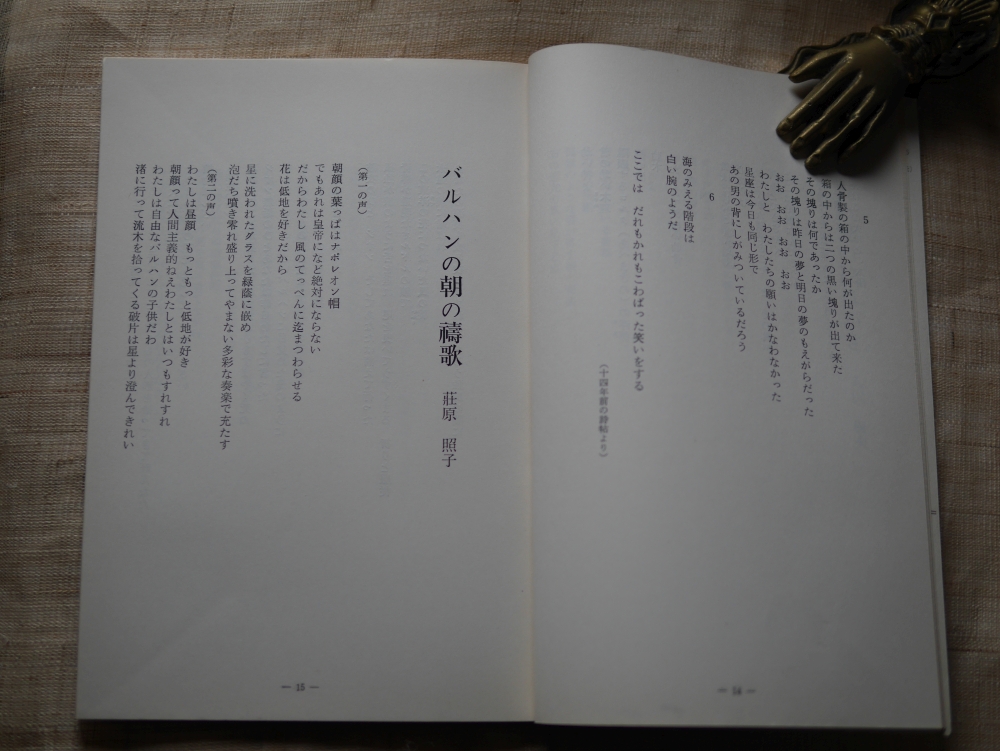 5
人骨製の箱の中から何が出たのか
箱の中からは二つの黒い塊りが出て来た
その塊りは何であったか
その塊りは昨日の夢と明日の夢のもえがらだった
おお　おお　おお　おお
わたしと　わたしたちの願いはかなわなかった
星座は今日も同じ形で
あの男の背にしがみついているだろう
6
海のみえる階段は
白い腕のようだ
ここでは　だれもかれもこわばった笑いをする
(十四年前の詩帖より)
― 14 ―
バルハンの朝の禱歌
莊原　照子
(第一の声)
朝顔の葉っぱはナポレオン帽
でもあれは皇帝になど絶対にならない
だからわたし　風のてっぺんに迄まつわらせる
花は低地を好きだから
星に洗われたグラスを緑蔭に嵌め
泡だち噴き零れ盛り上ってやまない多彩な奏楽で充たす
(第二の声)
わたしは昼顔　もっともっと低地が好き
朝顔って人間主義的ねえわたしとはいつもすれすれ
わたしは自由なバルハンの子供だわ
渚に行って流木を拾ってくる破片は星より澄んできれい
― 15 ―